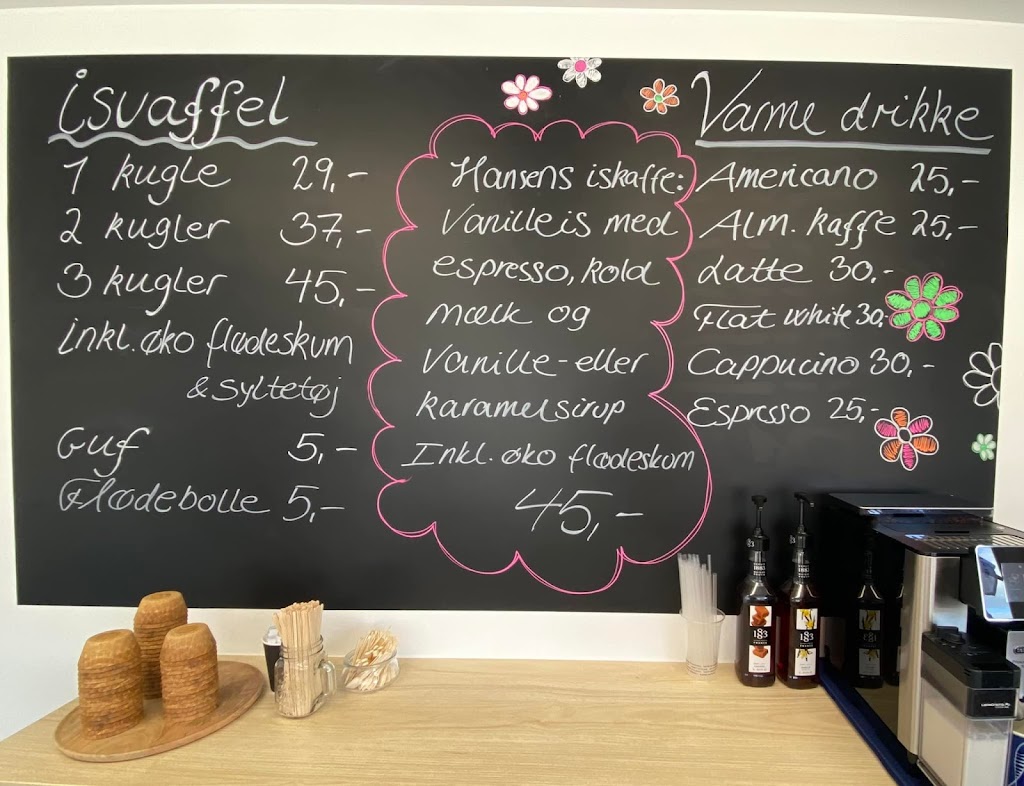 isvaffel
1 kugle 29,-
2 kugler 37,-
3 kugler 45,-
inkl. øko flødeskum
& syltetøj
Guf 5,-
Flødebolle 5,-
Hansens iskaffe:
Vanilleis med
espresso, kold
mælk og
Vanille- eller
karamelsirup
Inkl. øko flødeskum
45,-
Varme drikke
Americano 25,-
Alm. kaffe 25,-
Latte 30,-
Flat white 30,-
Cappucino 30,-
Espresso 25,-
1883
1883